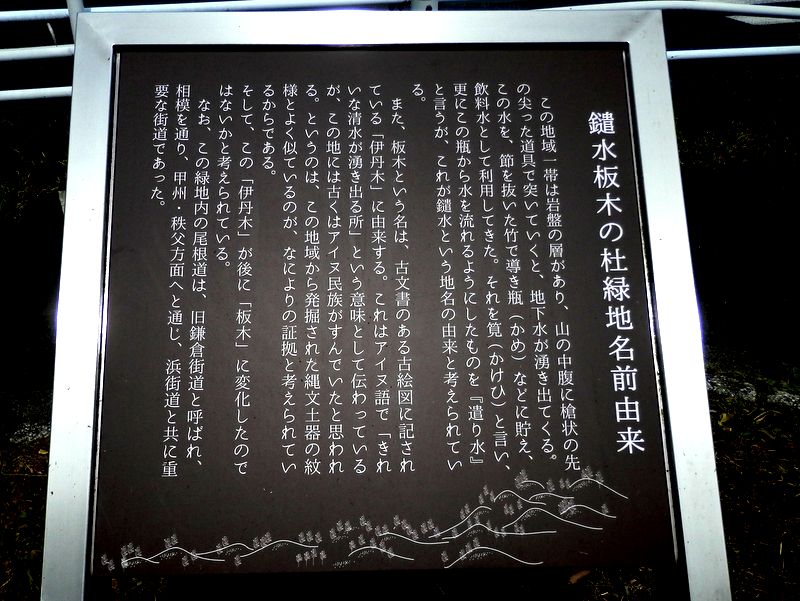 鑓水板木の杜緑地名前由来
この地域一帯は岩盤の層があり、山の中腹に槍状の先
の尖った道具で突いていくと、地下水が湧き出てくる。
この水を、節を抜いた竹で導き瓶（かめ）などに貯え、
飲料水として利用してきた。それを筧（かけひ）と言い、
更にこの瓶から水を流れるようにしたものを『遣り水』
と言うが、これが鑓水という地名の由来と考えられてい
る。
また、板木という名は、古文書のある古絵図に記され
ている「伊丹木」に由来する。これはアイヌ語で「きれ
いな清水が湧き出る所」という意味として伝わっている
が、この地には古くはアイヌ民族がすんでいたと思われ
る。というのは、この地域から発掘された縄文土器の紋
様とよく似ているのが、なによりの証拠と考えられてい
るからである。
そして、この「伊丹木」が後に「板木」に変化したので
はないかと考えられている。
なお、この緑地内の尾根道は、旧鎌倉街道と呼ばれ、
相模を通り、甲州・秩父方面へと通じ、浜街道と共に重
要な街道であった。